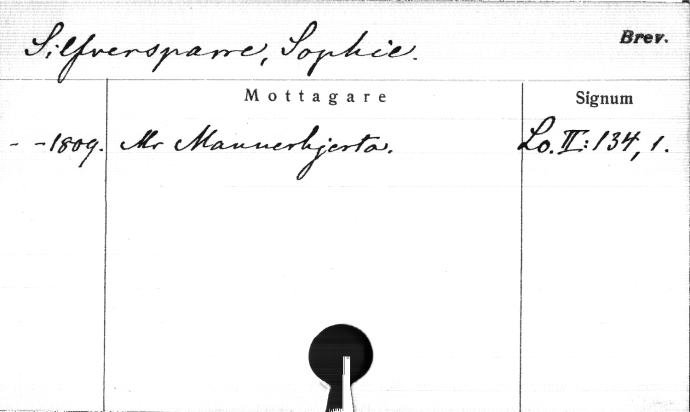 Silfversparre, Sophie. Brev.
Mottagare Signum
- -1809. Mr Mannerhjerta. Lo. II:134, 1.